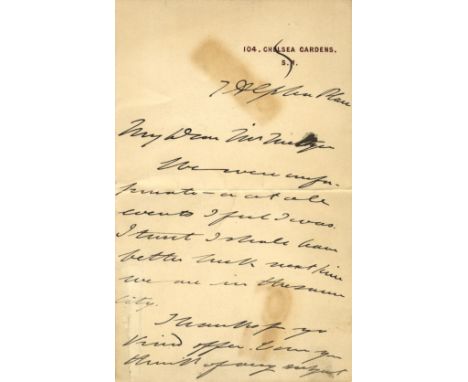 104. CHELSEA GARDENS.
S.W.
7 Place
My Dear Mr
We were unfor-
tunate - or at all
events I feel I was.
I trust I shall have
better luck next time
we are in the same
city.
Thanks for yr
kind offer. Can you
think of any subject